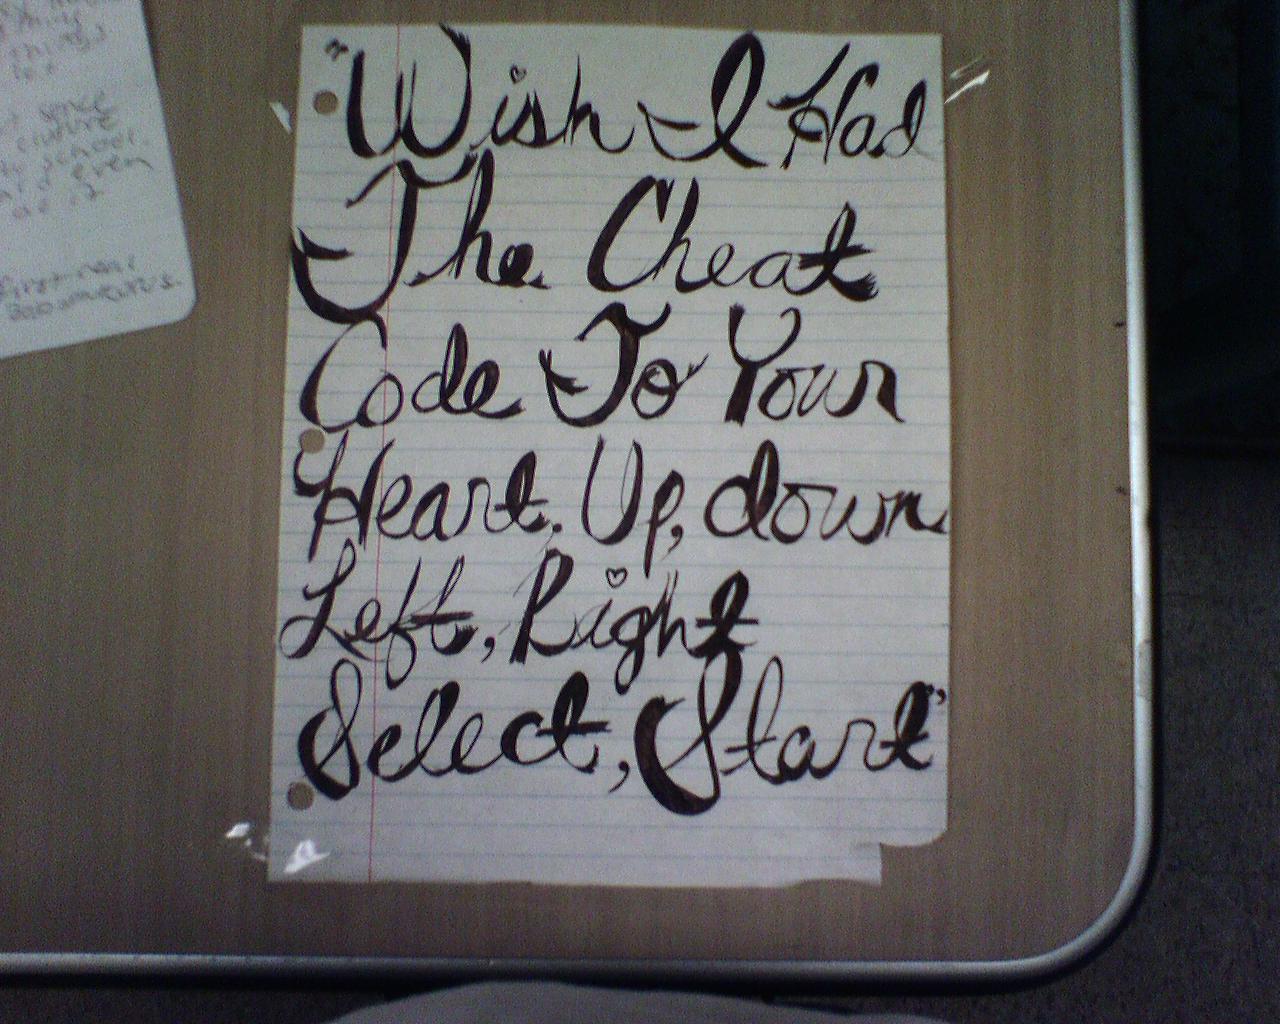 things
school.
even
first
"Wish I Had
The Cheat
Code To Your
Heart. Up, down
Left, Right
Select, Start"